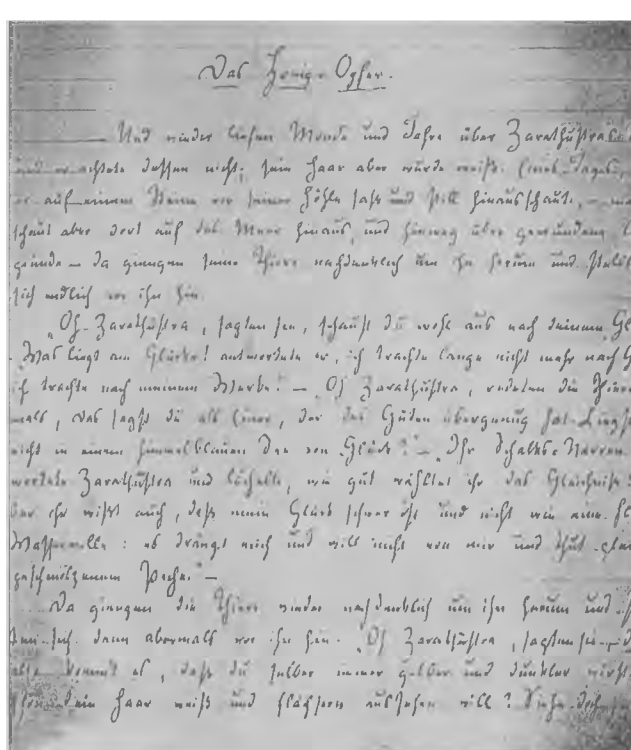 Das Honig-Opfer.
Und wieder liefen Monde und Jahre über Zarathustras
und er achtete dessen nicht; sein Haar aber wurde weiß. Eines Tages,
er auf einem Steine vor seiner Höhle saß und still hinausschaute, —
schaut aber dort auf das Meer hinaus, und hinweg über gewundene
gründe — da giengen seine Thiere nachdenklich um ihn herum und
sich endlich vor ihn hin.
„Oh Zarathustra, sagten sie, schaust du wohl aus nach deinem
„Was liegt am Glücke! antwortete er, ich trachte lange nicht mehr nach
ich trachte nach meinem Werke." — „Oh Zarathustra, redeten die Thiere
mals, das sagst du als Einer, der des Guten übergenug hat. Liegst
nicht in einem himmelblauen See von Glück?" — „Ihr Schalks-Narren,
wortete Zarathustra und lächelte, wie gut wähltet ihr das Gleichniß!
ber ihr wißt auch, daß mein Glück schwer ist und nicht wie eine
Wasserwelle: es drängt mich und will nicht von mir und thut
geschmolzenem Peche." —
Da giengen die Thiere wieder nachdenklich um ihn herum und
sich dann abermals vor ihn hin. „Oh Zarathustra, sagten sie,
also kommt es, daß du selber immer gelber und dunkler wirst,
dein Haar weiß und flächsern aussehen will? Siehe doch,